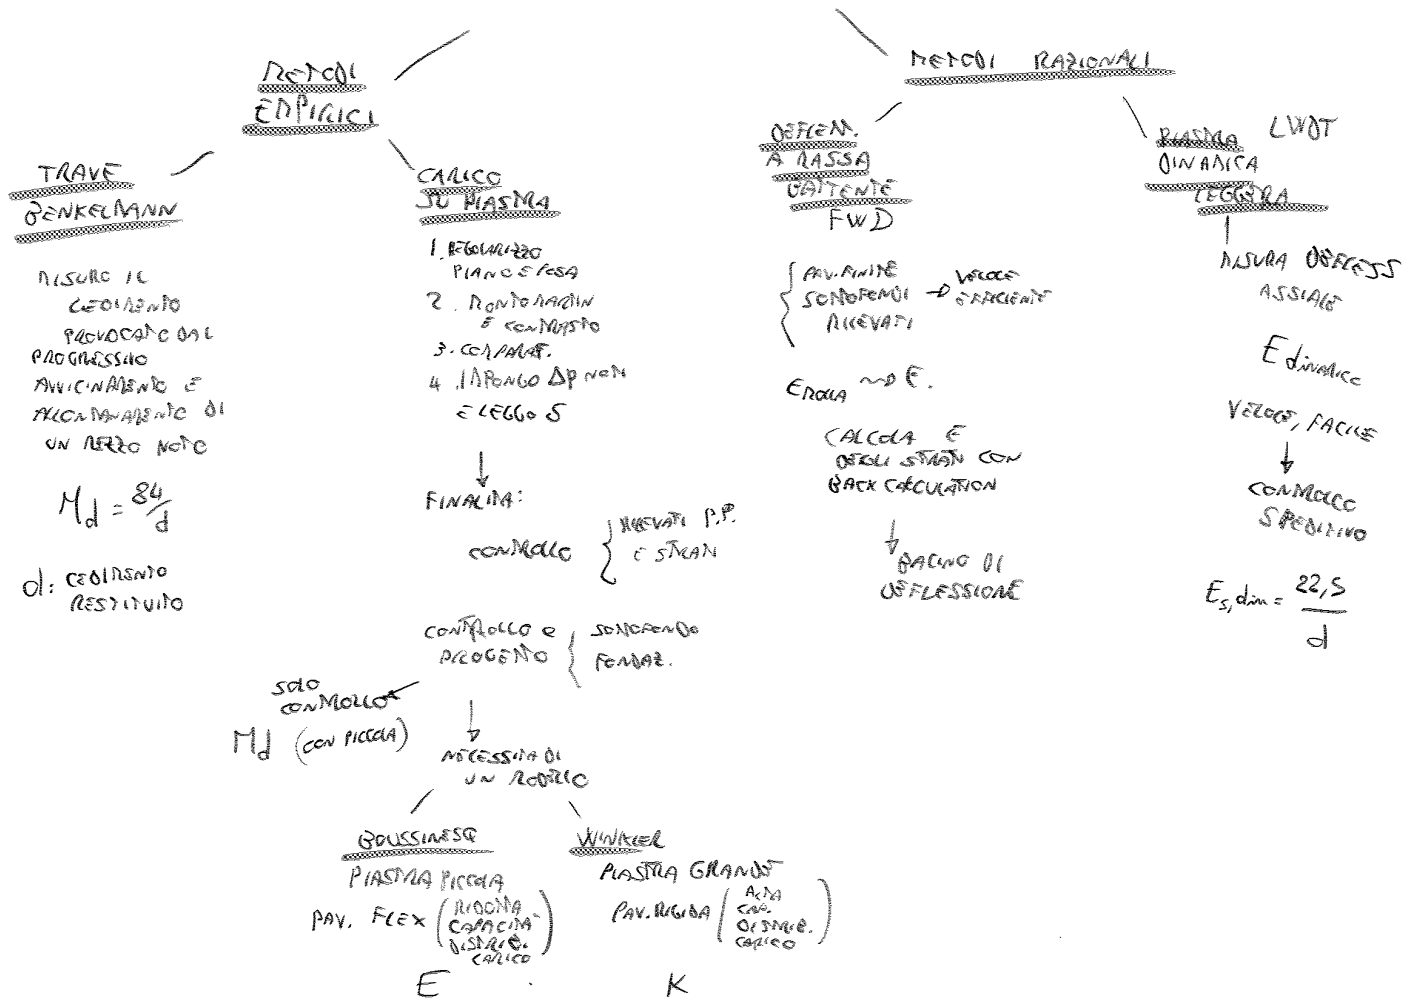 METODI
EMPIRICI
TRAVE
BENKELMANN
MISURO IL
CEDIMENTO
PROVOCATO DAL
PROGRESSIVO
AVVICINAMENTO E
ALLONTANAMENTO DI
UN MEZZO NOTO
Md = 84/d
d: CEDIMENTO
RESTITUITO
CARICO
SU PIASTRA
1. REGOLARIZZO
PIANO E POSA
2. MONTO MARTIN
E CONTRASTO
3. COMPARAT.
4. IMPONGO Δp NOTI
E LEGGO S
FINALITÀ:
CONTROLLO { RILEVATI P.P.
E STRATI
CONTROLLO e
PROGETTO { SOTTOFONDO
FONDAZ.
SOLO
CONTROLLO
Md (CON PICCOLA)
NECESSITÀ DI
UN MODELLO
BOUSSINESQ
PIASTRA PICCOLA
PAV. FLEX (RIDOTTA
CAPACITÀ
DISTRIB.
CARICO)
E
WINKLER
PIASTRA GRANDE
PAV. RIGIDA (ALTA
CAP.
DISTRIB.
CARICO)
K
METODI RAZIONALI
DEFLEM.
A MASSA
BATTENTE
FWD
{ PAV. FINITE
SOTTOFONDI
RILEVATI
→ VELOCE
EFFICIENTE
EMOLLA → E.
CALCOLA E
DEGLI STRATI CON
BACK CALCULATION
BACINO DI
DEFLESSIONE
PIASTRA LWDT
DINAMICA
LEGGERA
MISURA DEFLESS
ASSIALE
E dinamico
VELOCE, FACILE
CONTROLLO
SPEDITIVO
Es,din = 22,5
d